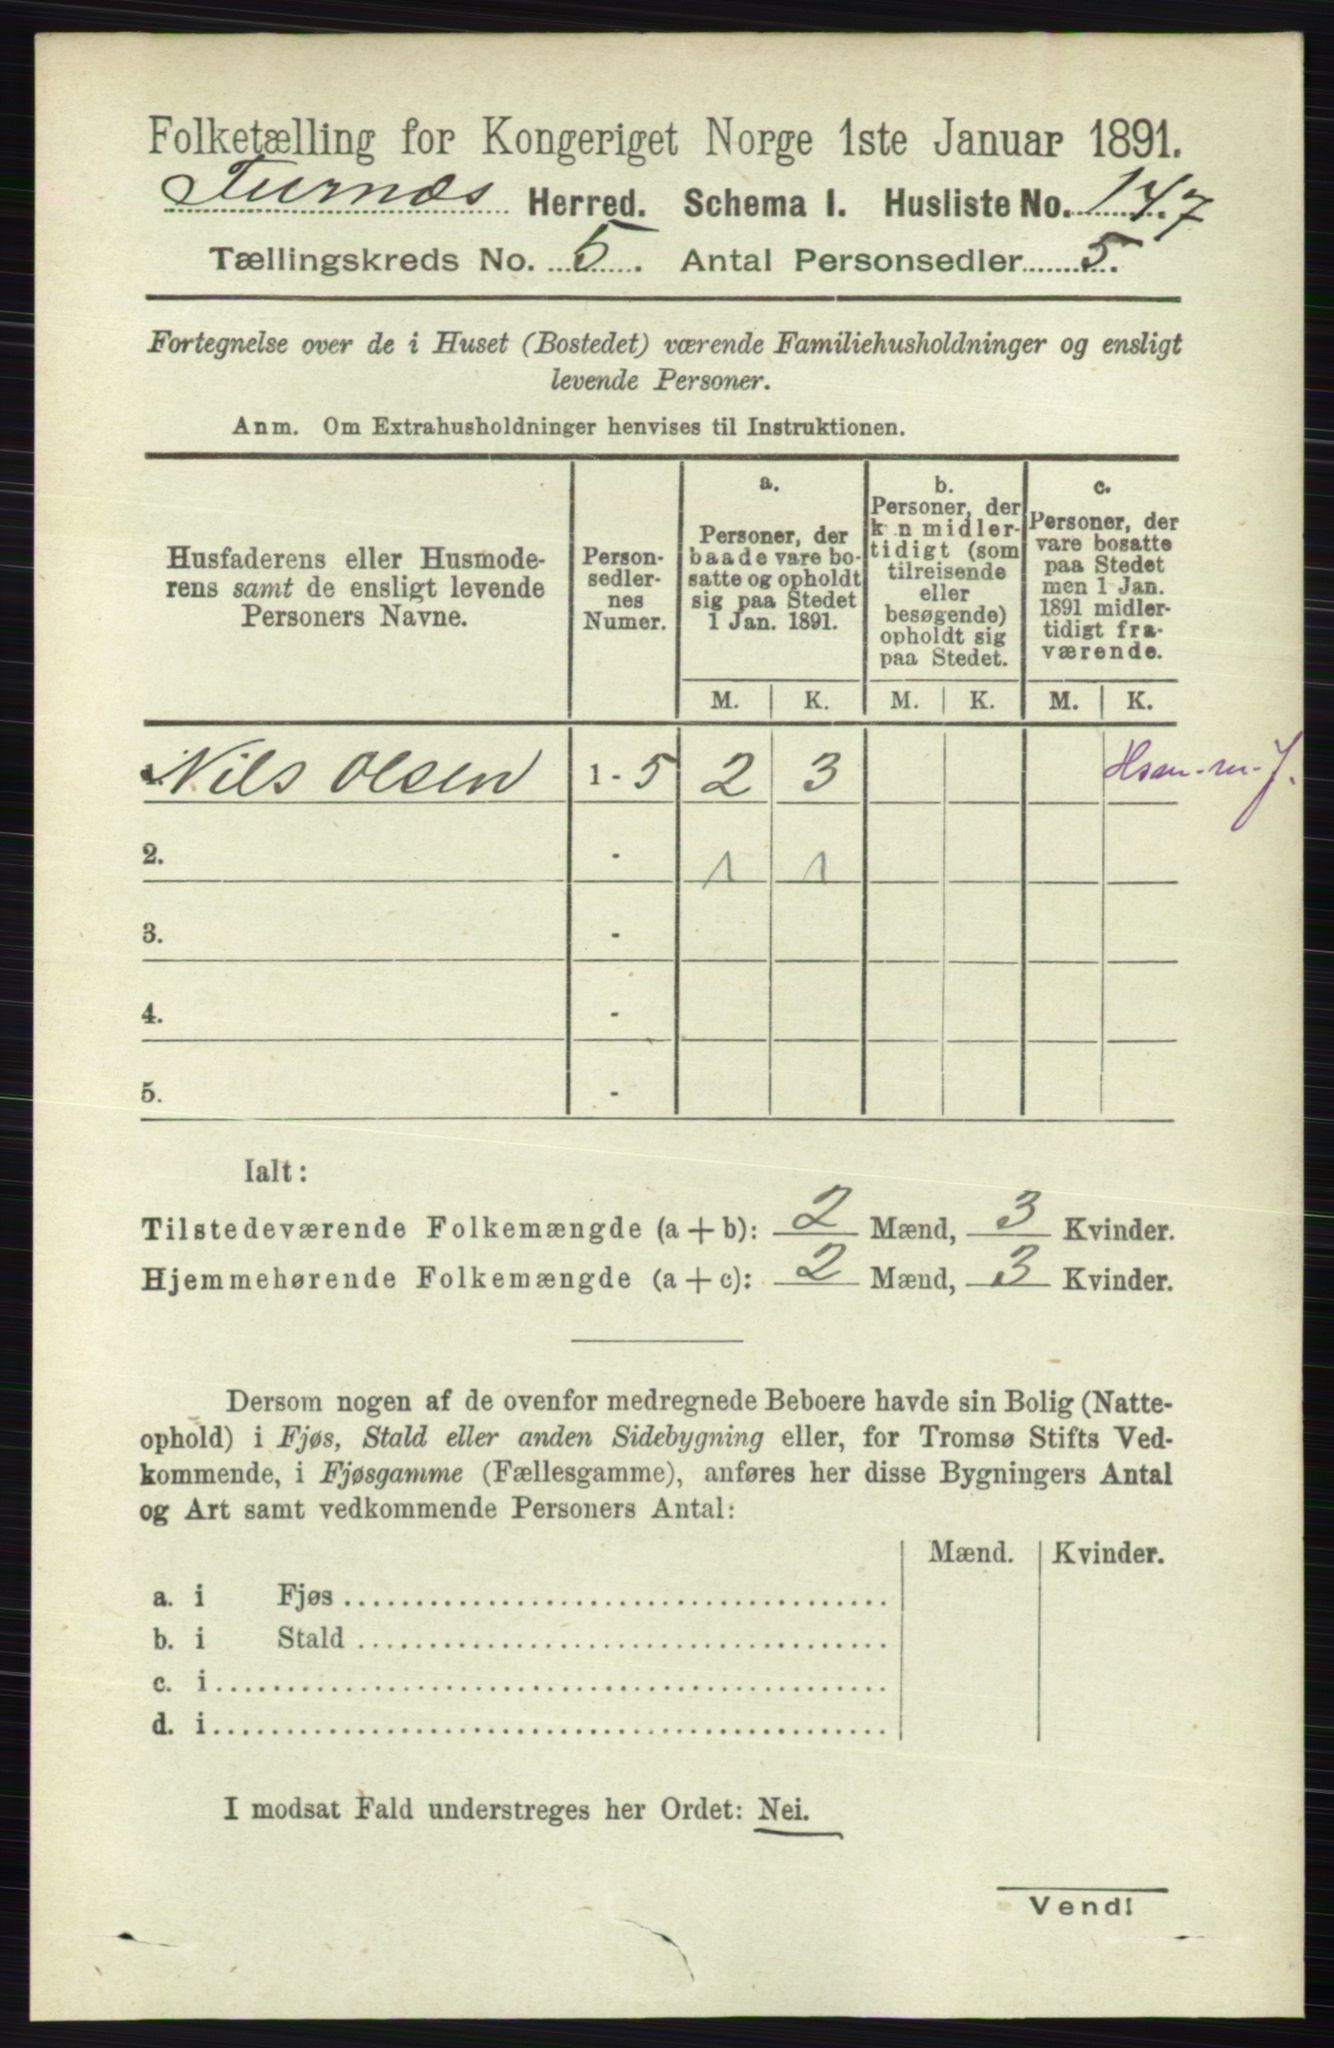 Folketælling for Kongeriget Norge 1ste Januar 1891.
Furnæs Herred. Schema I. Husliste No. 147
Tællingskreds No. 5. Antal Personsedler 5.
Fortegnelse over de i Huset (Bostedet) værende Familiehusholdninger og ensligt
levende Personer.
Anm. Om Extrahusholdninger henvises til Instruktionen.
Husfaderens eller Husmode-
rens samt de ensligt levende
Personers Navne.
Person-
sedler-
nes
Numer.
a.
Personer, der
baade vare bo-
satte og opholdt
sig paa Stedet
1 Jan. 1891.
b.
Personer, der
k n midler-
tidigt (som
tilreisende
eller
besøgende)
opholdt sig
paa Stedet.
c.
Personer, der
vare bosatte
paa Stedet
men 1 Jan.
1891 midler-
tidigt fra-
værende.
M. K. M. K. M. K.
1. Nils Olsen 1 - 5 2 3
2. - 1 1
3. -
4. -
5. -
Ialt:
Tilstedeværende Folkemængde (a + b): 2 Mænd, 3 Kvinder.
Hjemmehørende Folkemængde (a + c): 2 Mænd, 3 Kvinder.
Dersom nogen af de ovenfor medregnede Beboere havde sin Bolig (Natte-
ophold) i Fjøs, Stald eller anden Sidebygning eller, for Tromsø Stifts Ved-
kommende, i Fjøsgamme (Fællesgamme), anføres her disse Bygningers Antal
og Art samt vedkommende Personers Antal:
Mænd. Kvinder.
a. i Fjøs
b. i Stald
c. i
d. i
I modsat Fald understreges her Ordet: Nei.
Vend!